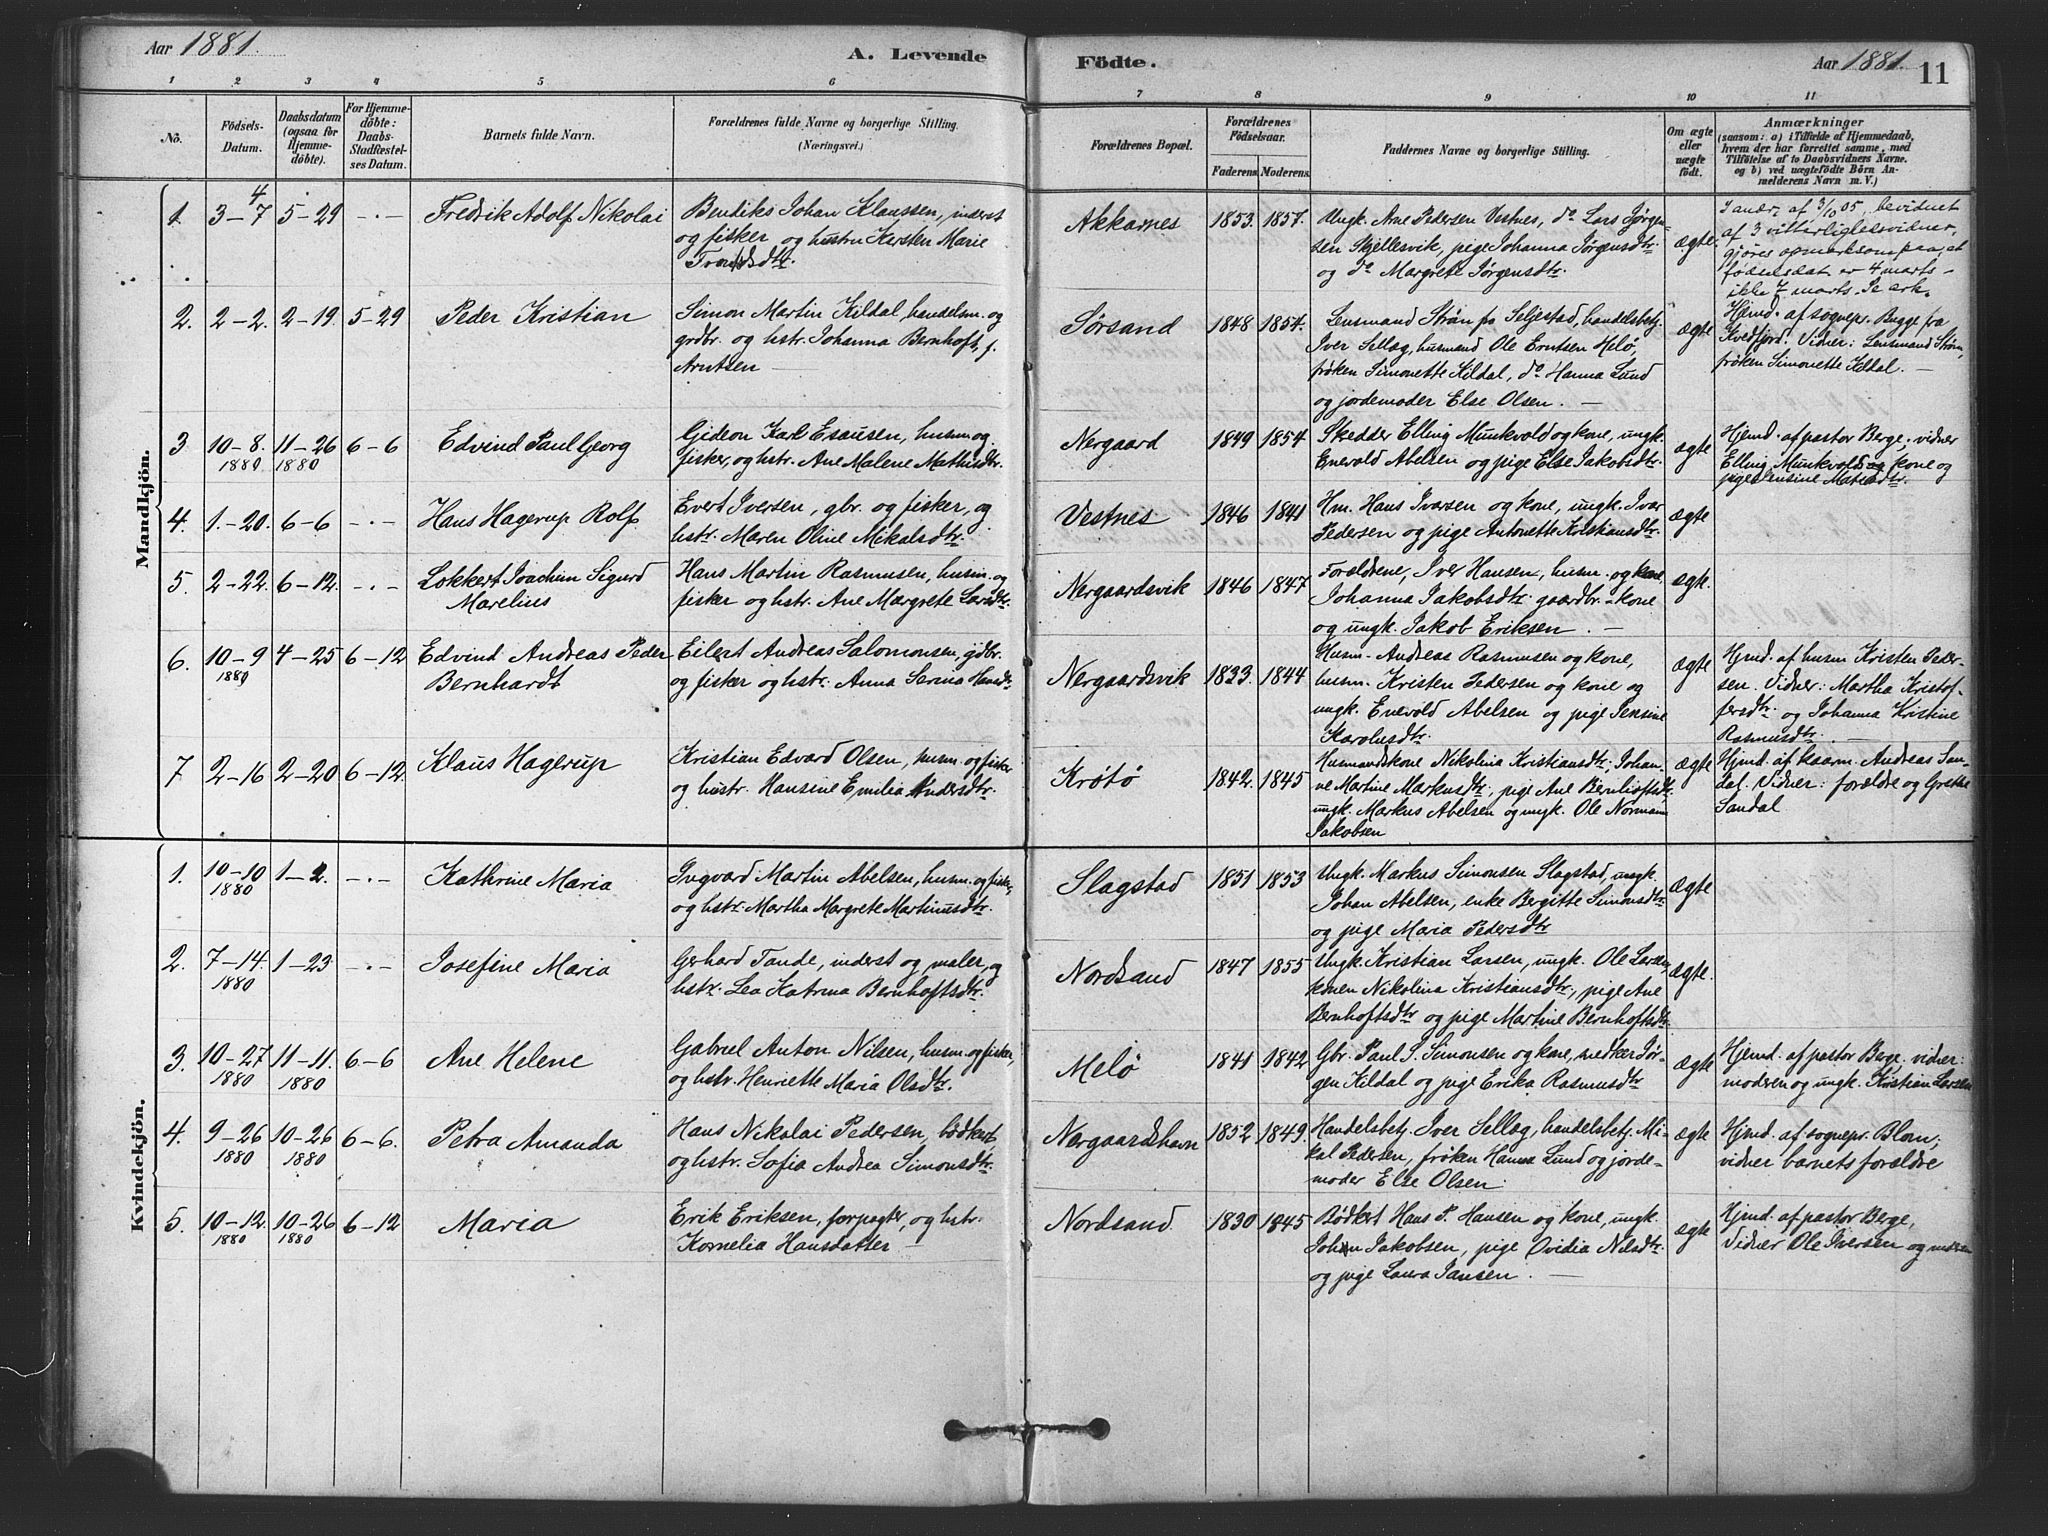 Aar 1881.
A. Levende
1 2 3 4 5 6
No.
Födsels-Datum.
Daabsdatum (ogsaa for Hjemme-döbte).
For Hjemme-döbte: Daabs-Stadfæstel-ses Datum.
Barnets fulde Navn.
Forældrenes fulde Navne og borgerlige Stilling. (Næringsvei.)
Födte.
Aar 1881.
11
7 8 9 10 11
Forældrenes Bopæl.
Forældrenes Födselsaar.
Faderens Moderens
Faddernes Navne og borgerlige Stilling.
Om ægte eller uægte födt.
Anmærkninger
(saasom: a) i Tilfælde af Hjemmedaab,
hvem der har forrettet samme, med
Tilföielse af to Daabsvidners Navne.
og b) ved uægtefödte Börn An-
melderens Navn m. V.)
Mandkjön.
1. 3-7 4 5-29 -.- Fredrik Adolf Nikolai
Bendiks Johan Klaussen, inderst
og fisker og hustru Karsten Marie
Akkarnes 1853. 1857.
Ungk. Arne Pedersen Vestnes, do Lars Jørgen-
sen Skjellesvik, pige Johanna Jørgensdtr
og do Margrete Jørgensdtr.
ægte.
I andr. af 3/10 05, bevidnet
af 3 vitterlighedsvidner,
gjøres opmærksom paa, at
fødselsdat er 4 marts -
ikke 7 marts. Se ark.
2. 2-2. 2-19. 5-29 Peder Kristian
Simon Martin Kildal, handelsm. og
grdbr. og hstr. Johanna Bernhoft, f.
Arntsen -
Sørsand 1848 1854.
Lensmand Strøm fra Seljestad, handelsbetj.
Iver Selläg, husmand Ole Erntsen Melö,
frøken Simonette Kildal, do Hanna Lund
og jordemoder Else Olsen. -
ægte
Hjmd. af sognepr. Bugge fra
Kvedfjord. Vidner: Lensmand Strøm,
frøken Simonette Kildal. -
3. 10-8. 1880 11-26 1880 6-6 Edvind Paul Georg
Gideon Karl Esausen, husm. og
fisker, og hstr. Ane Malene Mathisdtr.
Nergaard 1849 1854
Skedder Elling Munkvold og kone, ungk.
Enevold Abelsen og pige Else Jakobsdtr.
ægte
Hjmd. af pastor Berge; vidner
Elling Munkvold og kone og
4. 1.-20. 6-6 -.- Hans Hagerup Rolf
Evert Iversen, gbr. og fisker, og
hstr. Maren Oline Mikalsdtr.
Vestnes 1846 1841
Hm. Hans Ivarsen og kone, ungk. Ivar
Pedersen og pige Antonette Kristiansdtr.
ægte
5. 2-22. 6-12. -.- Lokkert Joachim Sigurd
Marelius
Hans Martin Rasmusen, husm. og
fisker og hstr. Ane Margrete Larsdtr.
Nergaardsvik 1846 1847
Forældrene, Iver Hansen, husm. og kone,
Johanna Jakobsdtr. gaardbr.-kone
og ungk. Jakob Eriksen. -
ægt.
6. 10-9 1880 4-25 6-12 Edvind Andreas Peder
Bernhardt
Eilert Andreas Salomonsen, gdbr.
og fisker og hstr. Anna Serina Hansdtr.
Nergaardsvik 1833. 1844
Husm. Andreas Rasmusen og kone,
husm. Kristen Pedersen og kone og
ungk. Enevold Abelsen og pige Jensine
Karolusdtr.
ægte
Hjmd. af husm Kristen Peder-
sen. Vidner: Martha Kristof-
fersdtr. og Johanna Kristine
Rasmusdtr. -
7 2-16 2-20 6-12. Klaus Hagerup
Kristian Edvard Olsen, husm. og fisker
og hustr. Hansine Emilia Andersdtr.
Krøtö 1842. 1845
Husmandskone Nikolina Kristiansdtr, Johan-
ne Martine Markusdtr, pige Ane Bernhoftsdtr,
ungk. Markus Abelsen og ungk. Ole Normann
Jakobsen
ægte
Hjmd. af kaarm. Andreas San-
dal. Vidner: forældre og Grethe
Sandal
Kvindekjön.
1. 10-10 1880 1-2. -.- Kathrine Maria
Ingvard Martin Abelsen, husm. og fisker,
og hstr. Martha Margrete Martinusdtr.
Slagstad 1851 1853
Ungk. Markus Simonsen Slagstad, ungk.
Johan Abelsen, enke Bergitte Simonsdtr
og pige Maria Pedersdtr
ægte
2. 7-14. 1880 1-23 -.- Josefine Maria
Gerhard Tande, inderst og maler, og
hstr. Lea Katrina Bernhoftsdtr.
Nordsand 1847 1855
Ungk. Kristian Larsen, ungk. Ole Larsen,
konen Nikolina Kristiansdtr, pige Ane
Bernhoftsdtr og pige Martine Bernhoftsdtr.
ægte.
3. 10-27 1880 11-11. 1880 6-6 Ane Helene
Gabriel Anton Nilsen, husm. og fisker,
og hstr. Henriette Maria Olsdtr.
Melö 1841 1842
Gbr. Paul S. Simonsen og kone, snedker Jør-
gen Kildal og pige Erika Rasmusdtr
ægte
Hjemd. af pastor Berge, vidner:
moderen og ungk. Kristian Larsen
4. 9-26 1880 10-26 1880 6-6. Petra Amanda
Hans Nikolai Pedersen, bødker
og hstr. Sofia Andrea Simonsdtr.
Nergaardshavn 1852 1849.
Handelsbetj. Iver Selläg, handelsbetj. Mi-
kal Pedersen, frøken Hanna Lund og jorde-
moder Else Olsen.
ægte
Hjmd. af sognepr. Blom.
vidner barnets forældre
5. 10-12. 1880 10-26 1880 6-12 Maria
Erik Eriksen, forpagter, og hstr.
Kornelia Hansdatter -
Nordsand. 1830 1845
Bødker Hans P. Hansen og kone, ungk.
Johan Jakobsen, pige Ovidia Nilsdtr
og pige Laura Jansen. -
ægte
Hjmd. af pastor Berge,
Vidner Ole Iversen og